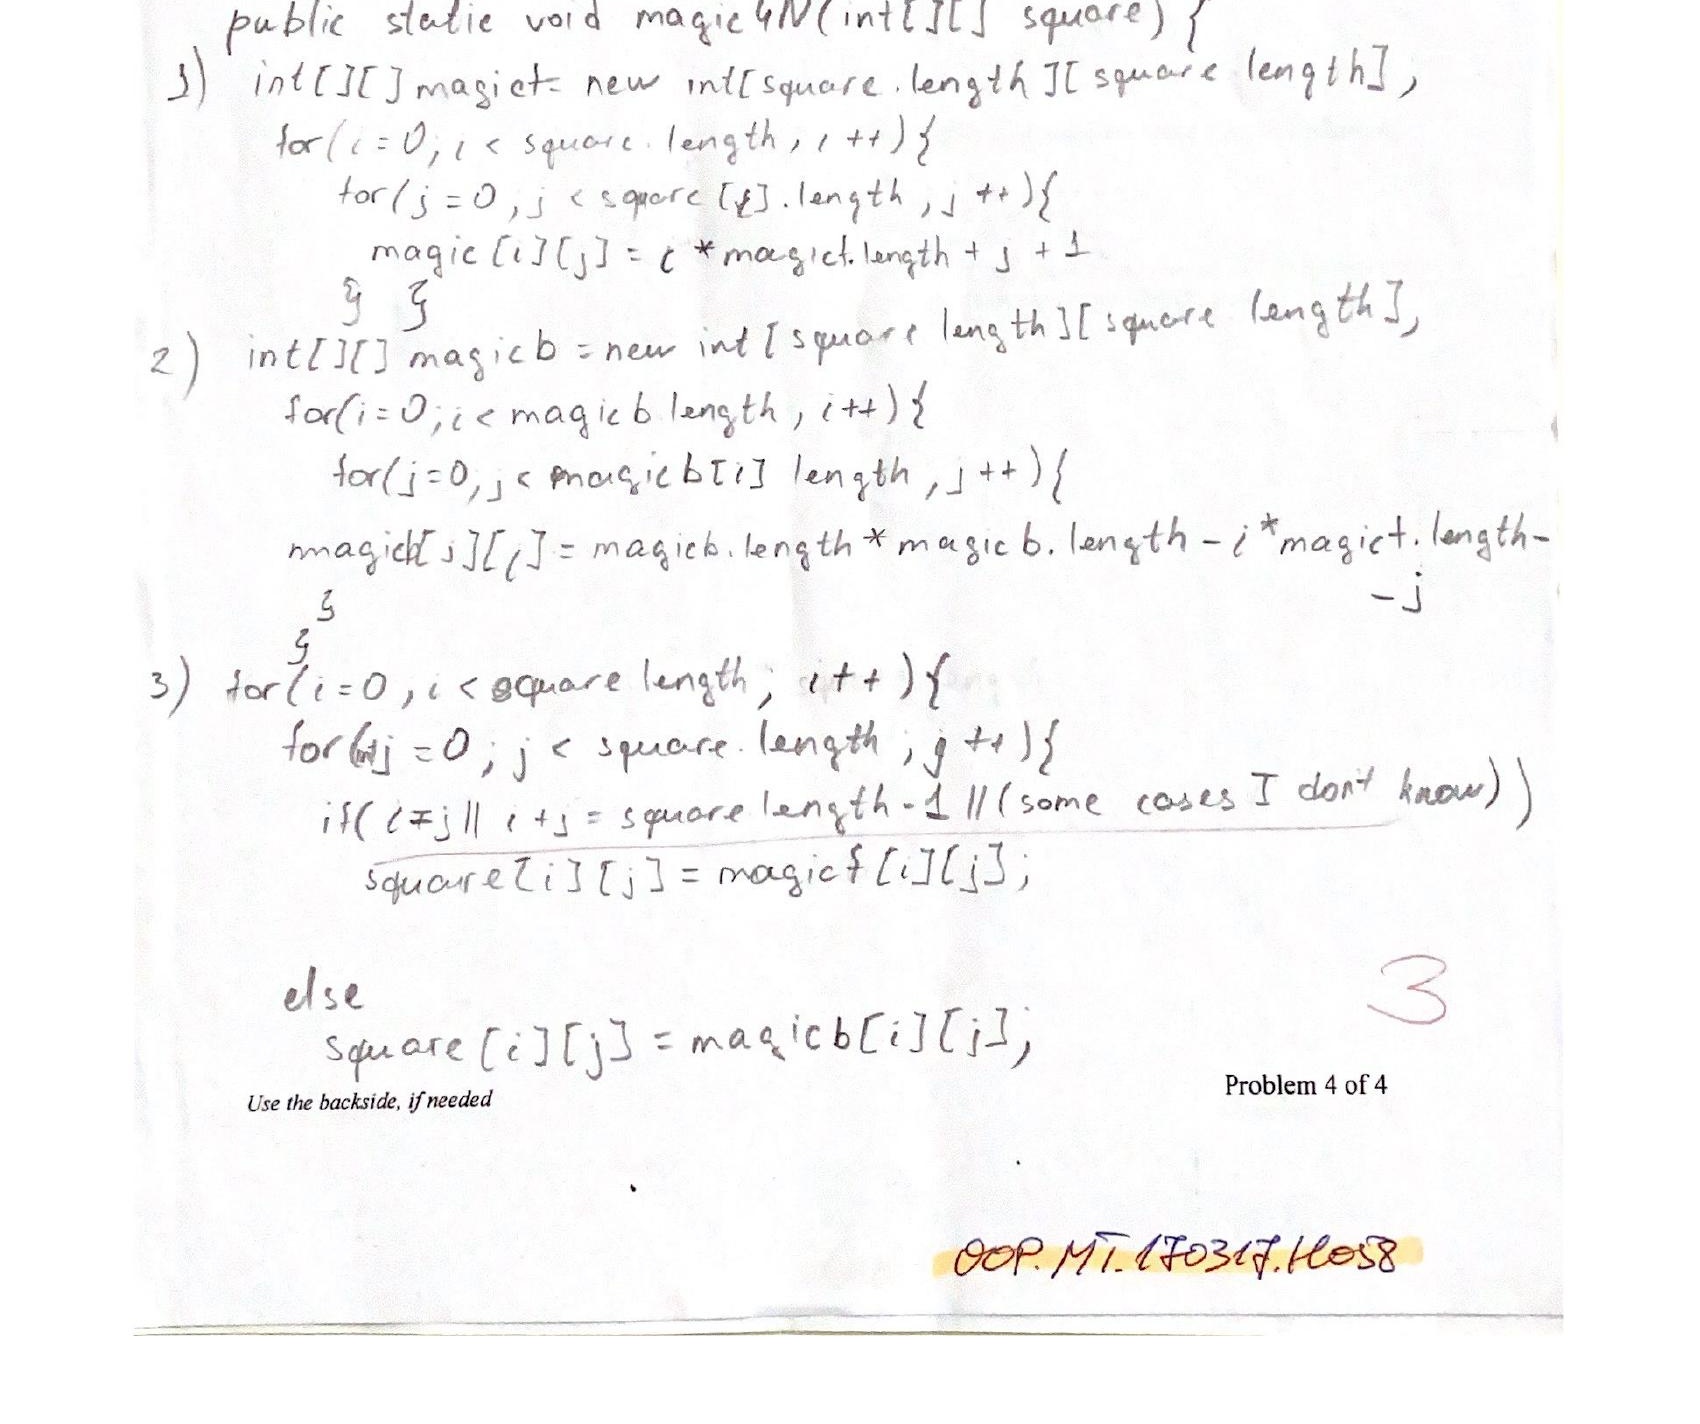 public static void magic4N(int[][] square) {
1) int[][] magict= new int[square.length][square length],
for(i=0; i < square. length, i ++){
for(j=0, j < square [i].length, j ++){
magic[i][j] = i * magict.length + j + 1
} }
2) int[][] magicb = new int[square length][square length],
for(i=0; i < magicb length, i++){
for(j=0, j < magicb[i] length, j ++){
magicb[j][i] = magicb.length * magicb.length - i * magict.length -
- j
}
}
3) for(i=0, i < square length; i++){
for(int j =0; j < square. length; j ++){
if( i = j || i +j = square length-1 || (some cases I don't know))
square[i][j] = magict[i][j];
else
square[i][j] = magicb[i][j];
3
Use the backside, if needed
Problem 4 of 4
OOP.MT.170317.H058